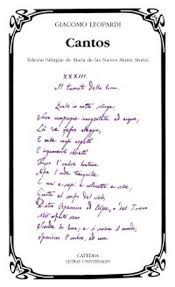 GIACOMO LEOPARDI
Cantos
Edición bilingüe de María de las Nieves Muñiz Muñiz
XXXIII
Il tramonto della luna.
Quale in notte
campagne inargentate ed acque,
Là 've zefiro aleggia,
E mille vaghi aspetti
E ingannevoli obbietti
l'ombre lontane
tranquille
E rami e siepi e collinette e ville;
del cielo,
Dietro Apennino od Alpe, o del Tirreno
seno
Scende la luna; e si scolora il mondo;
Spariscon l'ombre, ed una
CATEDRA
LETRAS UNIVERSALES